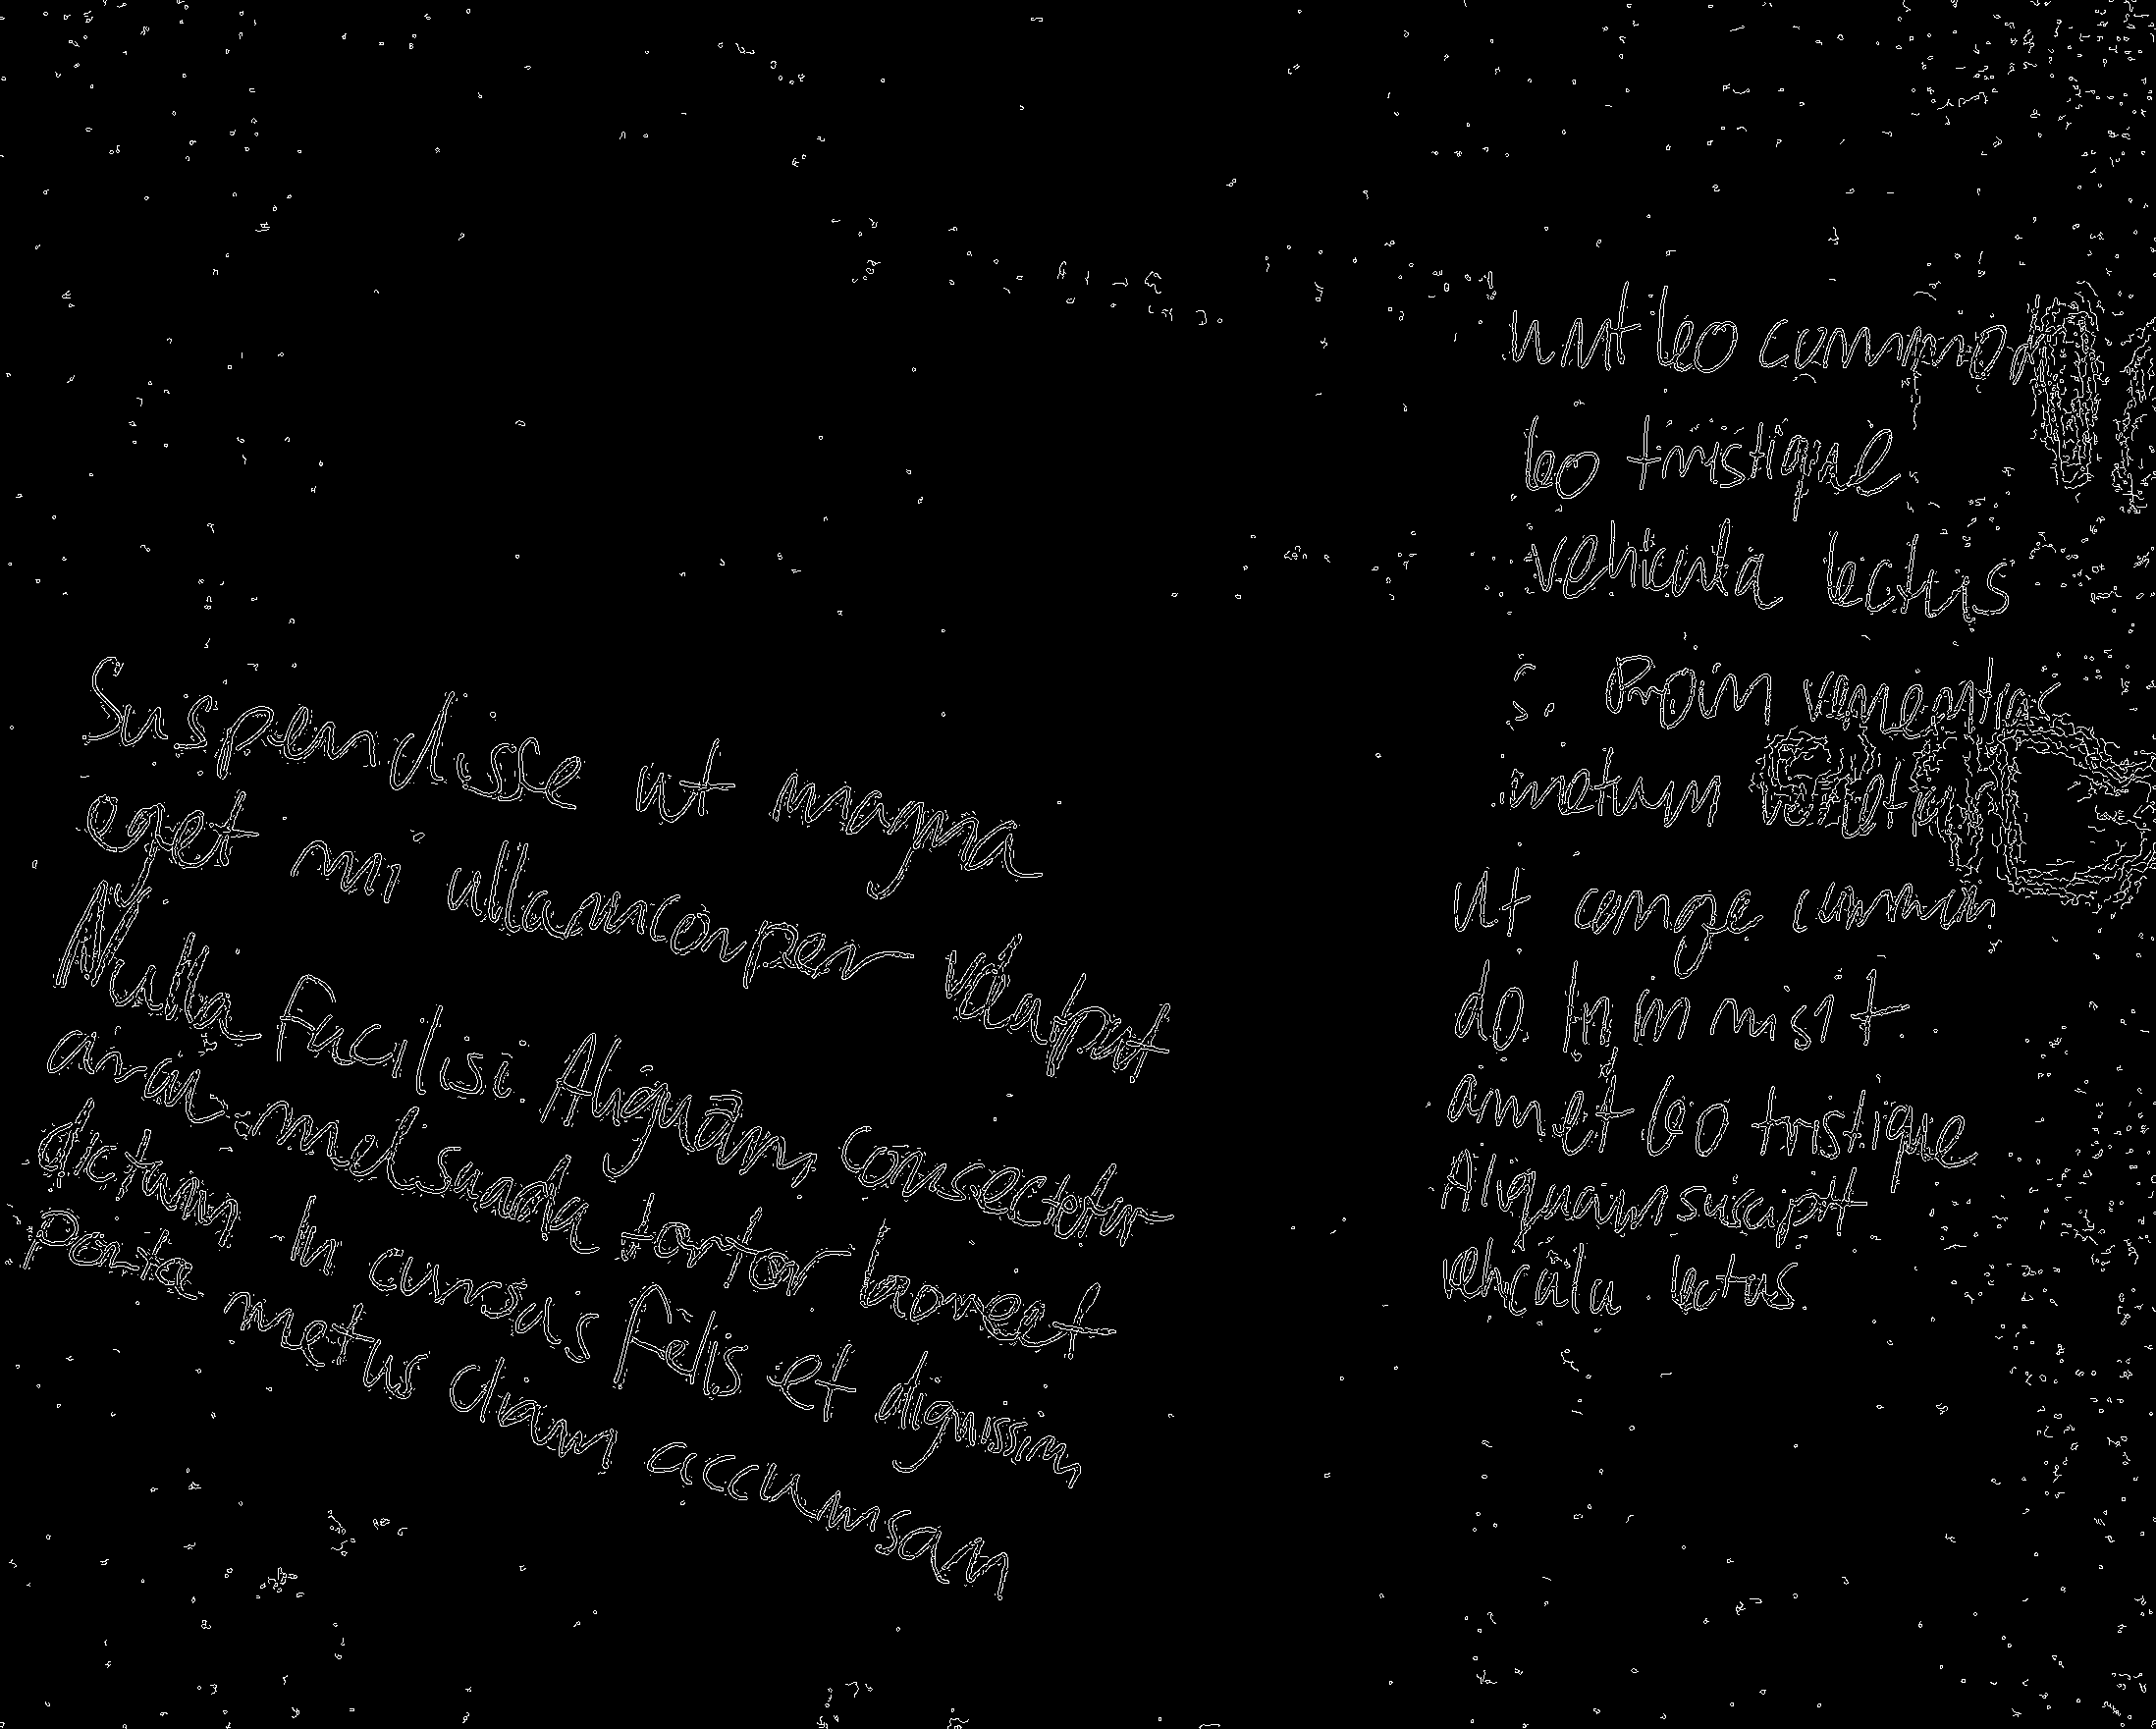 Suspendisse ut magna
eget mi ullamcorper
Nulla Facilisi. Aliquam consectetur
tortor laoreet
dictum In cursus felis et dignissim
Porta metus diam accumsan
leo commo
leo tristique
vehicula lectus
s. Proin
ut congue common
do In in nisi t
amet leo tristique
Aliquam suscipit
vehicula lectus.